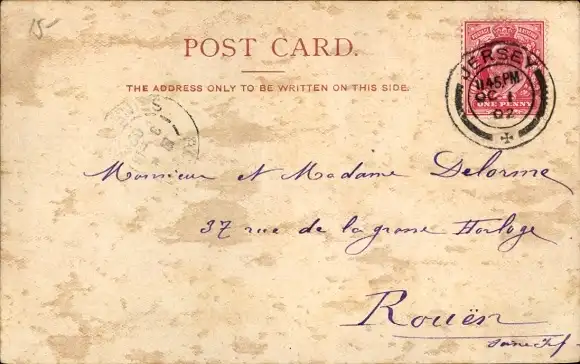 15-
POST CARD.
THE ADDRESS ONLY TO BE WRITTEN ON THIS SIDE.
JERSEY
11.45 PM
OC 1
02
ONE PENNY
Monsieur et Madame Delorme
37 rue de la grosse Horloge
Rouën